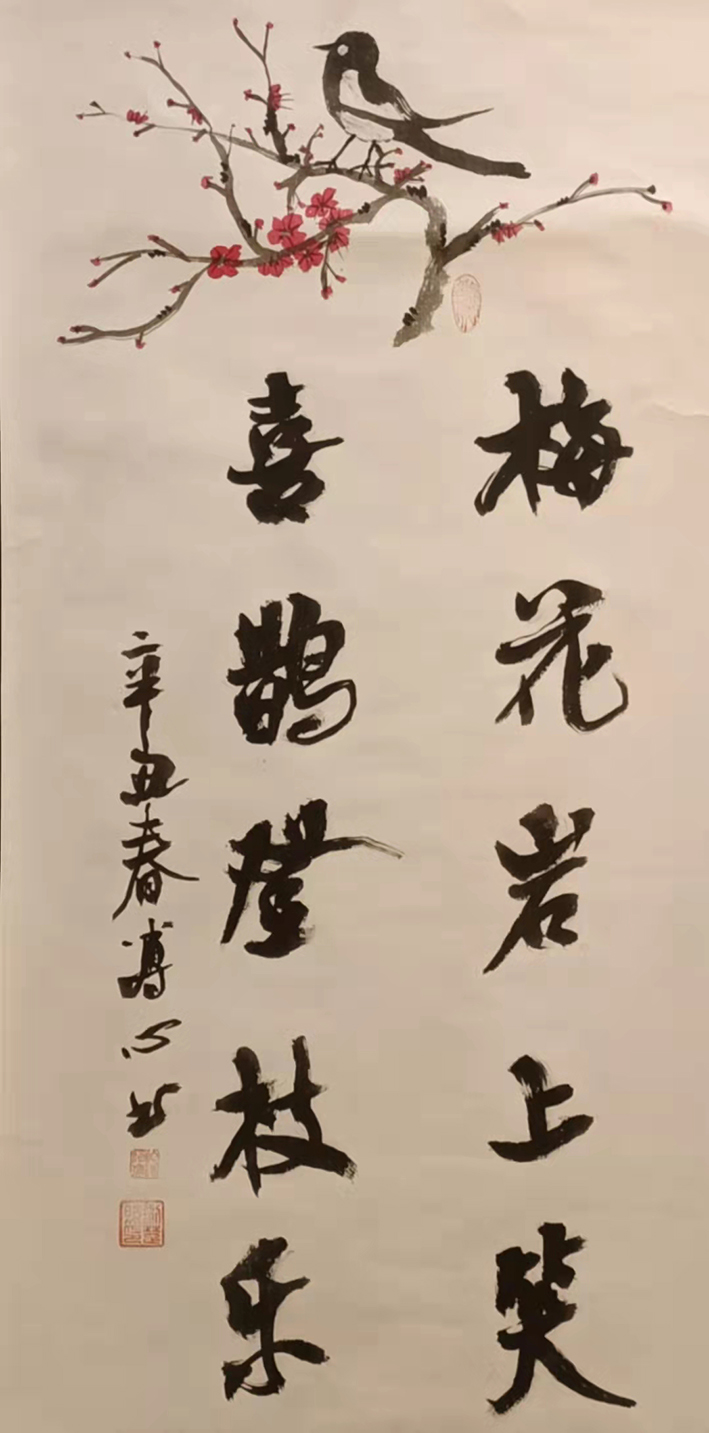 梅花岩上笑
喜鹊登枝乐
辛丑春 心书